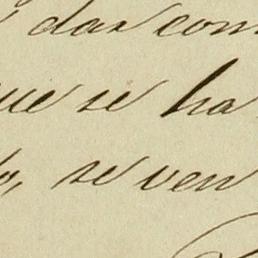 das com
que se ha
se ven